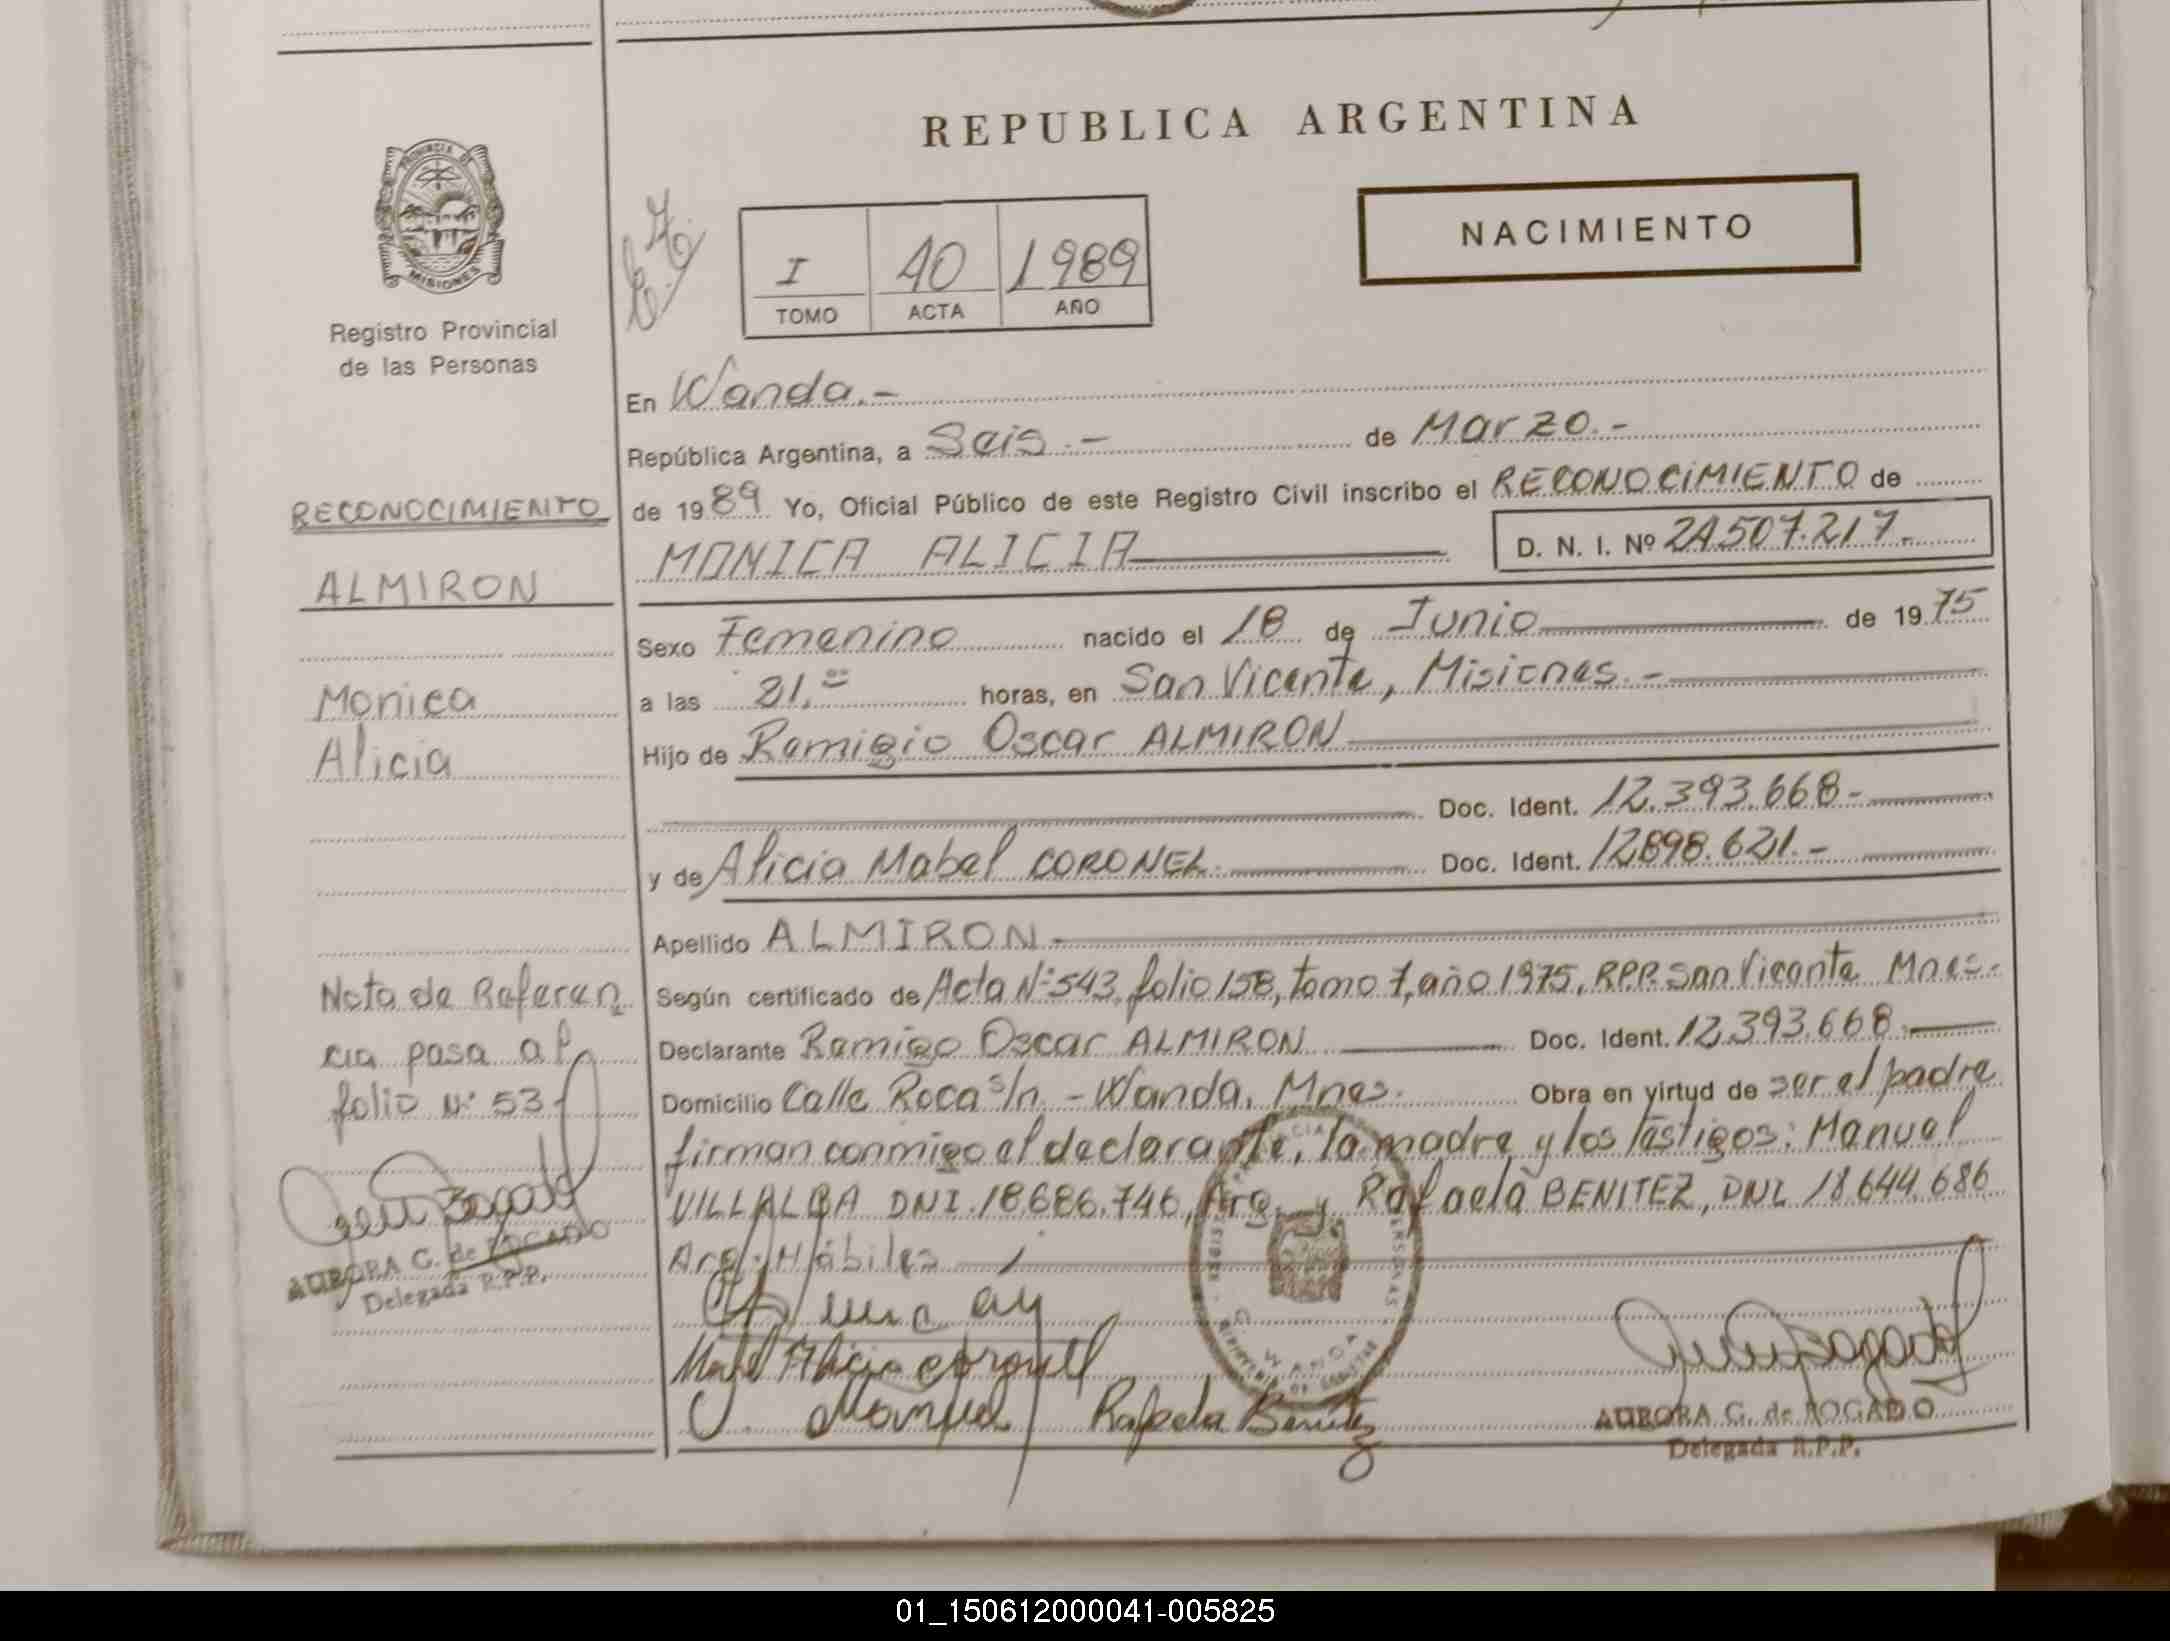 PROVINCIA DE
MISIONES
Registro Provincial
de las Personas
RECONOCIMIENTO
ALMIRON
Monica
Alicia
Nota de Referen
cia pasa al
folio Nº 53
AURORA G. de ROGADO
Delegada R.P.P.
REPUBLICA ARGENTINA
NACIMIENTO
I 40 1989
TOMO ACTA AÑO
En Wanda.-
República Argentina, a Seis.- de Marzo.-
de 1989 Yo, Oficial Público de este Registro Civil inscribo el RECONOCIMIENTO de
MONICA ALICIA D. N. I. Nº 24.507.217.-
Sexo Femenino nacido el 18 de Junio de 1975
a las 21.00 horas, en San Vicente, Misiones.-
Hijo de Remigio Oscar ALMIRON
Doc. Ident. 12.393.668-
y de Alicia Mabel CORONEL. Doc. Ident. 12.898.621.-
Apellido ALMIRON-
Según certificado de Acta Nº 543, folio 158, tomo 1, año 1975, R.P.P. San Vicente Mnes.-
Declarante Remigo Oscar ALMIRON Doc. Ident. 12.393.668-
Domicilio Calle Roca s/n. - Wanda, Mnes. Obra en virtud de ser el padre
firman conmigo el declarante, la madre y los testigos: Manuel
VILLALBA DNI. 18.686.746, Arg. y Rafaela BENITEZ, DNI. 18.644.686
Arg. Hábiles
WANDA
Rafaela Benitez
AURORA G. de ROGADO
Delegada R.P.P.
01_150612000041-005825